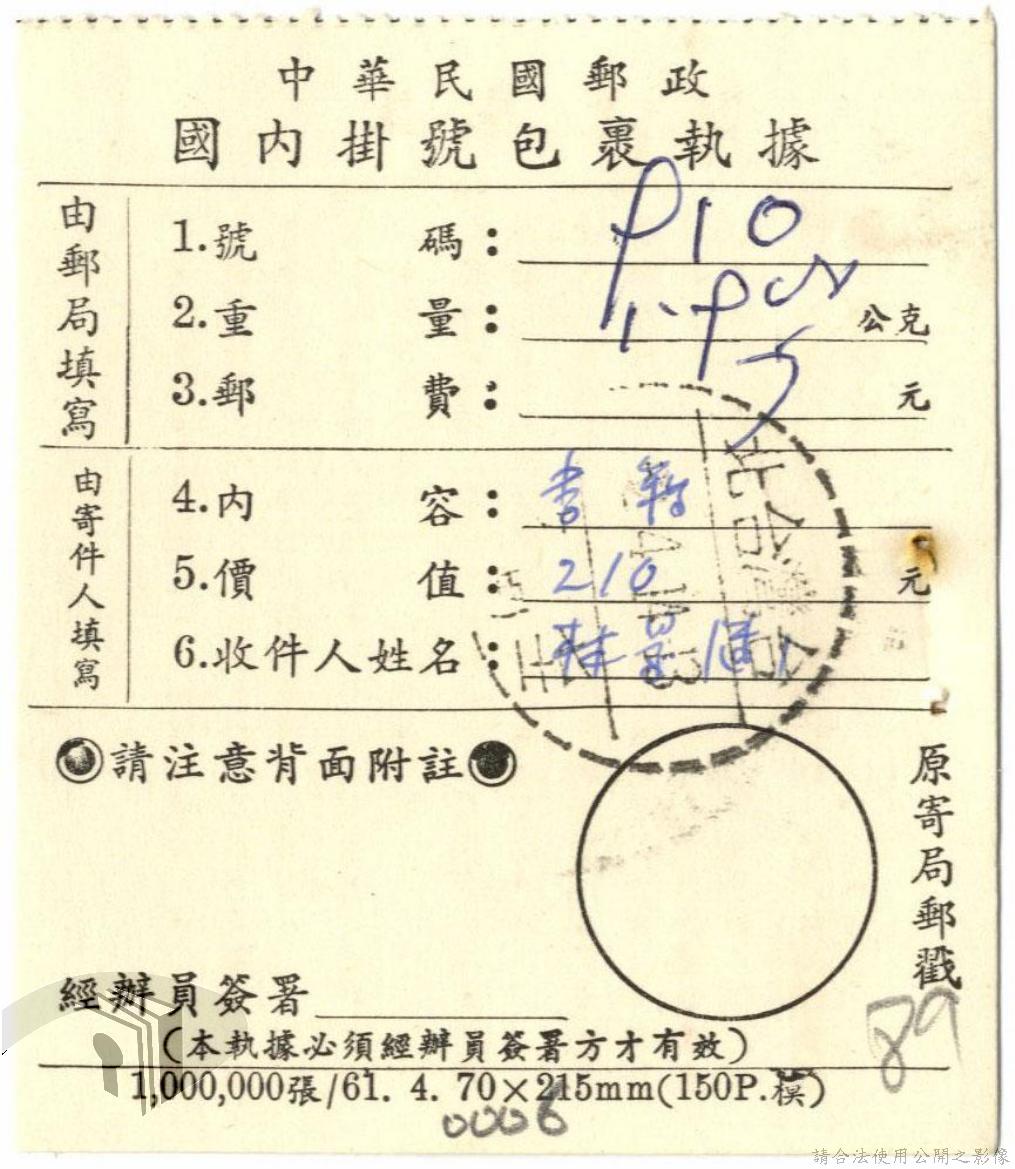 中華民國郵政
國內掛號包裹執據
由郵局填寫
1.號碼: 910
2.重量: 公克
3.郵費: 5元
由寄件人填寫
4.內容: 書籍
5.價值: 210元
6.收件人姓名: 林
請注意背面附註
原寄局郵戳
經辦員簽署
(本執據必須經辦員簽署方才有效)
1,000,000張/61. 4. 70×215mm(150P.模)
89
0006
請合法使用公開之影像